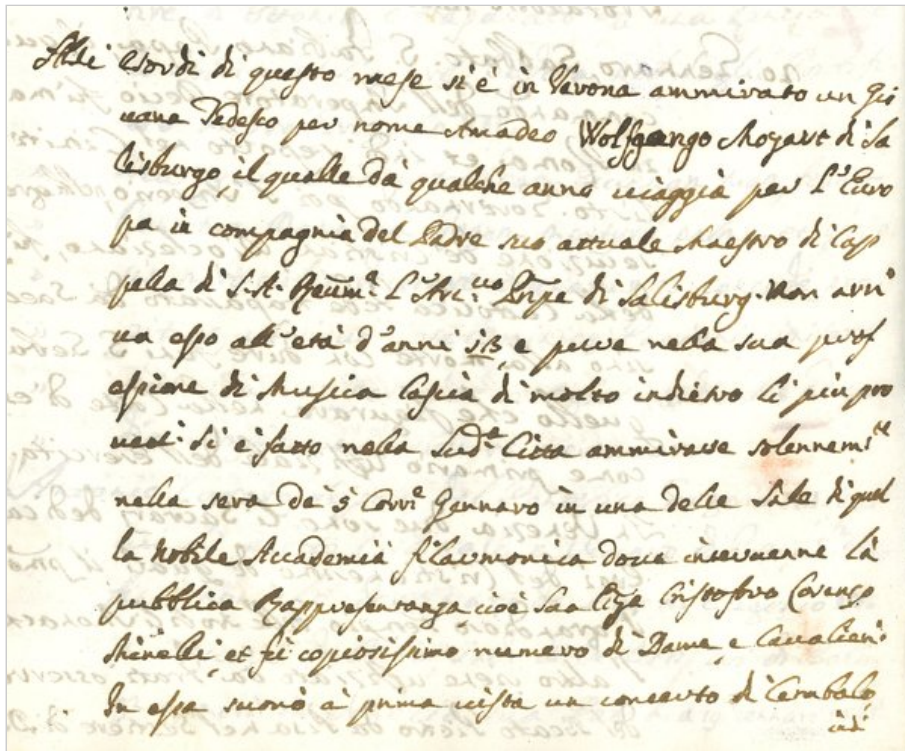 Alli esordi di questo mese si è in Verona ammirato un Gio
uane Tedesco per nome Amadeo Wolfgango Mozart di Sa
lisburgo il qualle dà qualche anno uiaggià per L'Euro
pa in compagnià del Padre suo attuale Maestro di Cap
pella di S. A. Reuṁa. L'Arc.uo Pnpe di Salisburg. Non arri
ua esso all'età d'anni 13, e pure nella sua prof
essione di Musica lascia di molto indietro li piu pro
uetti. Si è fatto nella Sud.t Citta ammirare solennem.te
nella sera de 5 Corr.e Gennaro in una delle Sale di quel
la Nobile Accademià filarmonica doue interuenne Là
pubblica Rappresentanza cioè Sua Cristofro
Minelli, et di copiosissimo numero di Dame, e Caualieri.
In essa suonò à prima uista un concerto di Cembalo,